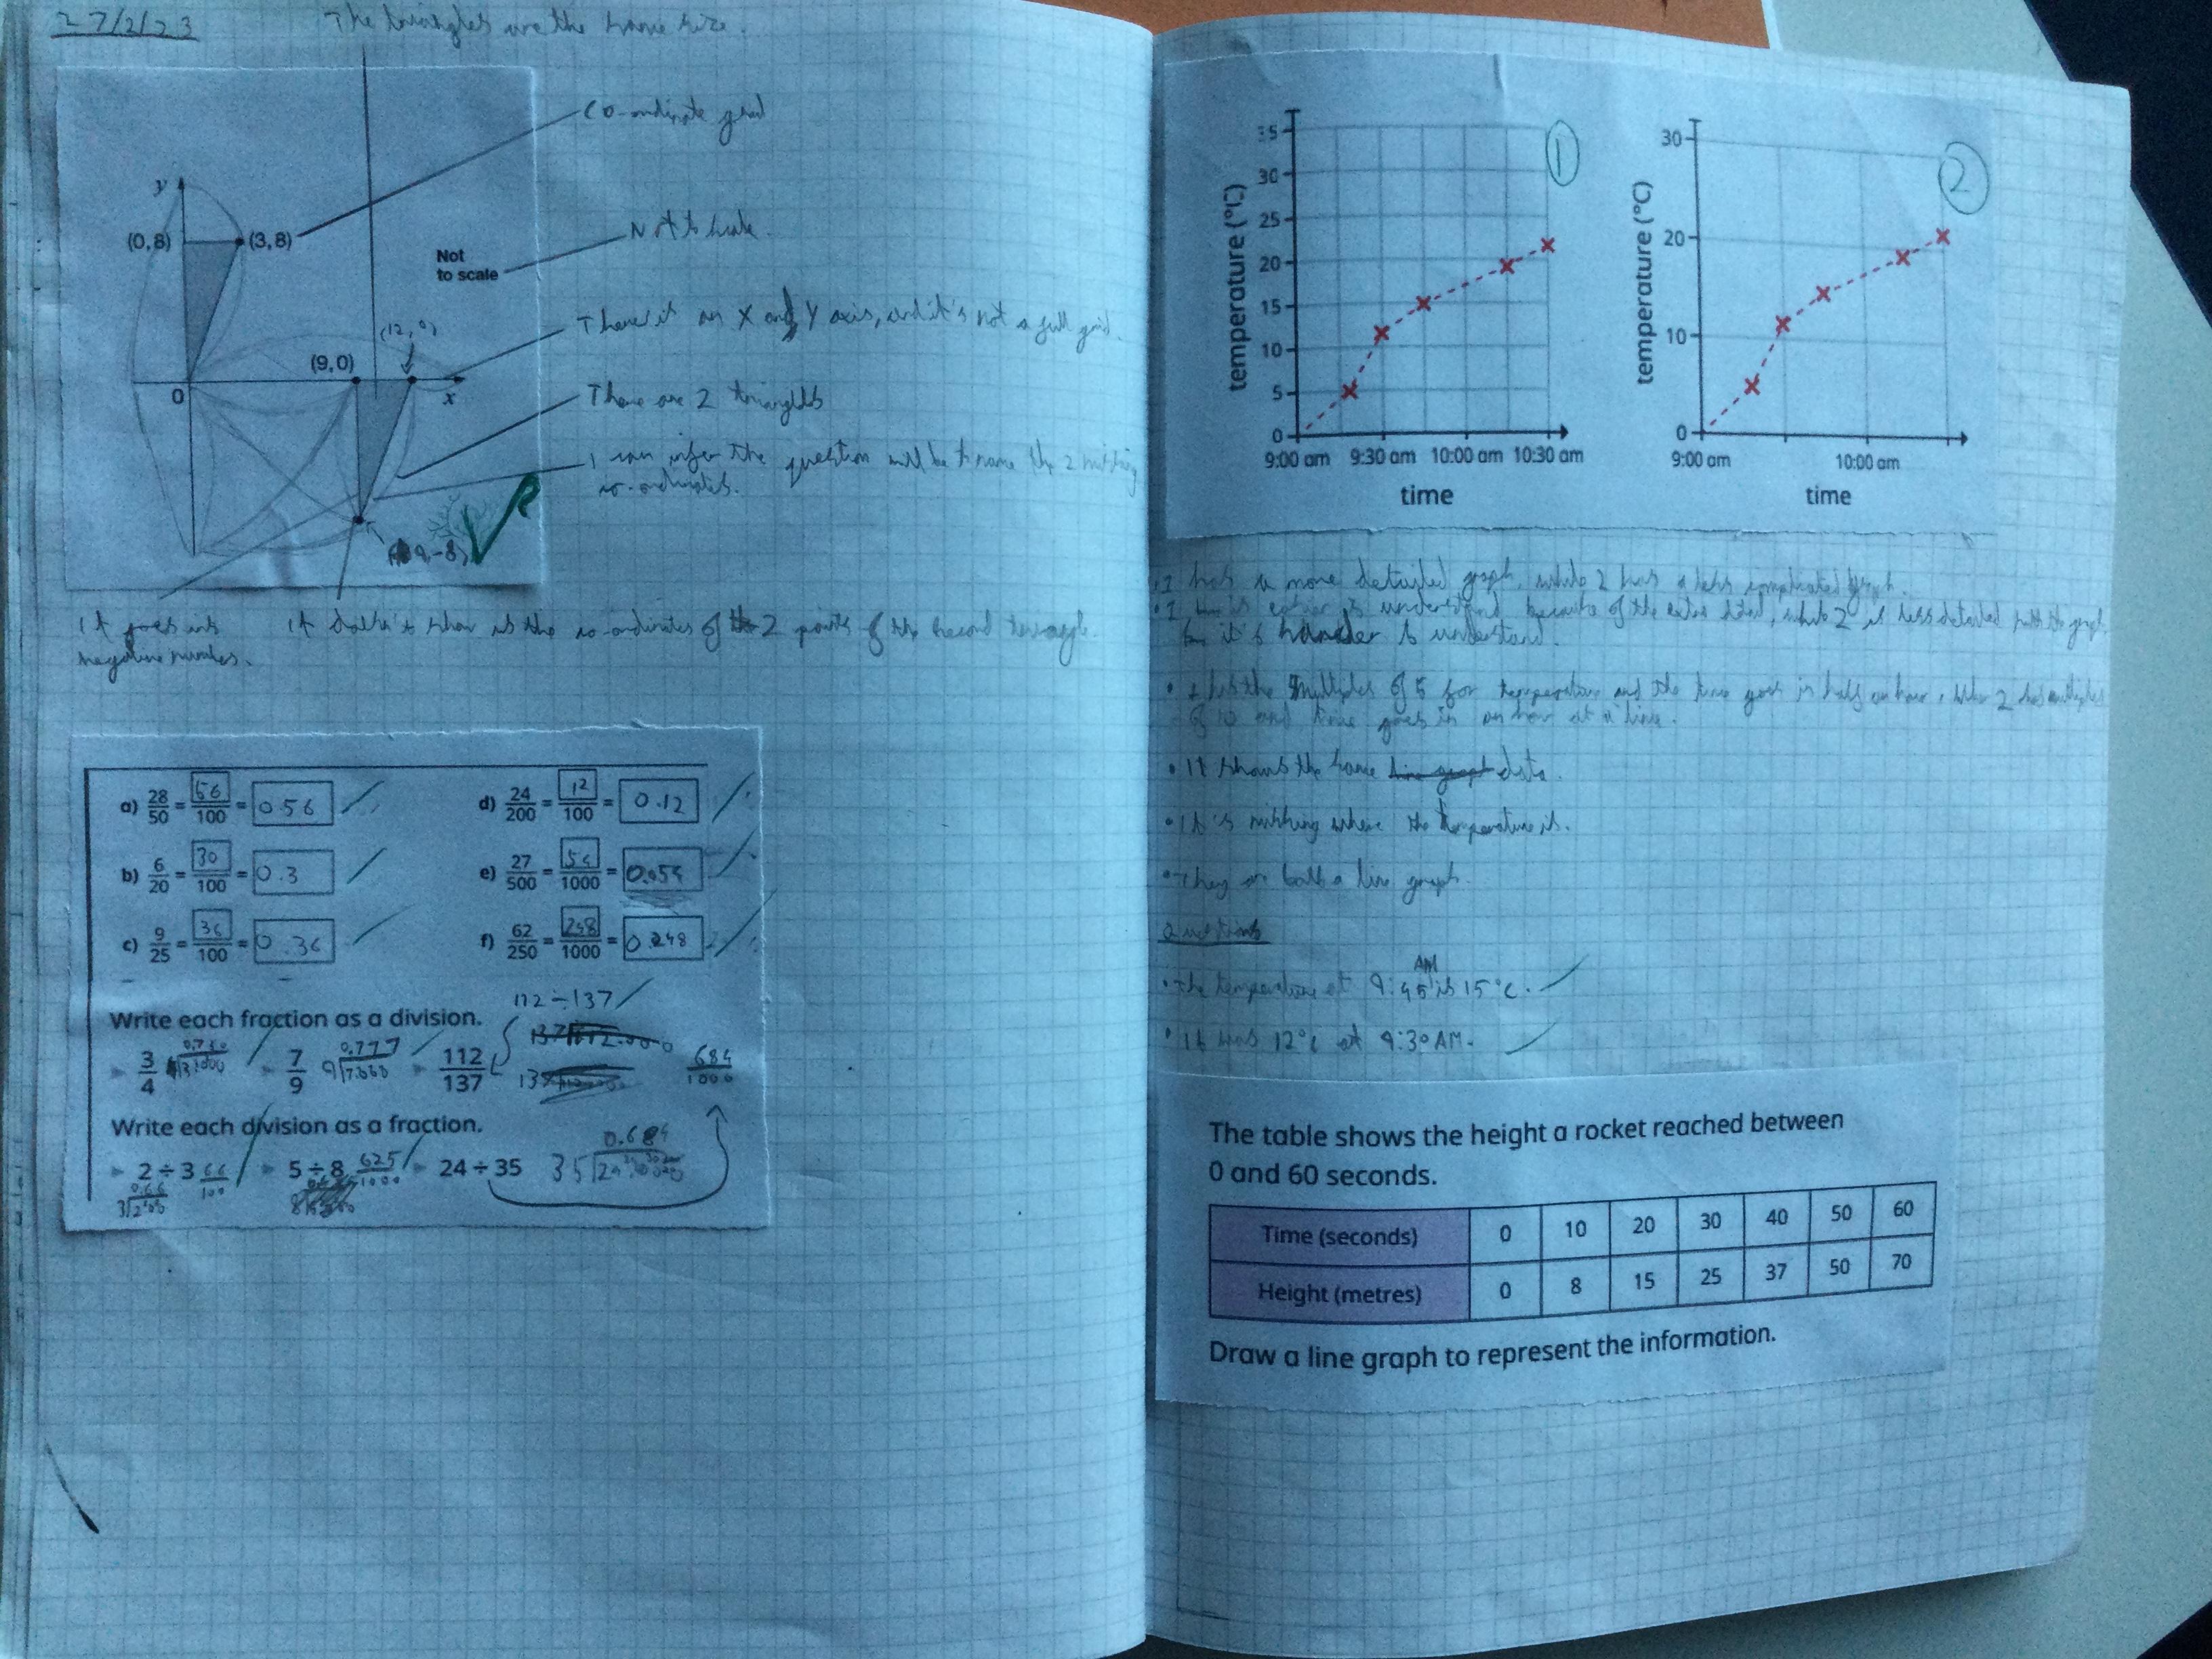 27/2/23
The triangles are the same size.
Co-ordinate grid
y
(0,8)
(3,8)
Not
to scale
Not to scale.
(12,0)
There is an X and Y axis, and it's not a full grid.
(9,0)
0
x
There are 2 triangles
I can infer the question will be to name the 2 missing
co-ordinates.
(9,-8)
It goes into
negative numbers.
It doesn't show us the co-ordinates of 2 points of the second triangle.
a) 28/50 = 56/100 = 0.56
b) 6/20 = 30/100 = 0.3
c) 9/25 = 36/100 = 0.36
d) 24/200 = 12/100 = 0.12
e) 27/500 = 54/1000 = 0.054
f) 62/250 = 248/1000 = 0.248
112 ÷ 137
Write each fraction as a division.
3/4 7/9 0.777 112/137
684/1000
Write each division as a fraction.
2 ÷ 3 66/100 5 ÷ 8 625/1000 24 ÷ 35 0.684
temperature (°C)
35
30
25
20
15
10
5
0
9:00 am 9:30 am 10:00 am 10:30 am
time
1
temperature (°C)
30
20
10
0
9:00 am 10:00 am
time
2
1 has a more detailed graph, while 2 has a less complicated graph.
1 is easier to understand because of the extra detail, while 2 is less detailed
it's harder to understand.
1 has the multiples of 5 for temperature and the time goes in half an hour, while 2 has multiples
of 10 and time goes in an hour at a time.
It shows the same line graph data.
It's missing where the temperature is.
They are both a line graph.
Questions
The temperature at 9:45 AM is 15°C.
It was 12°C at 9:30 AM.
The table shows the height a rocket reached between
0 and 60 seconds.
Time (seconds) 0 10 20 30 40 50 60
Height (metres) 0 8 15 25 37 50 70
Draw a line graph to represent the information.